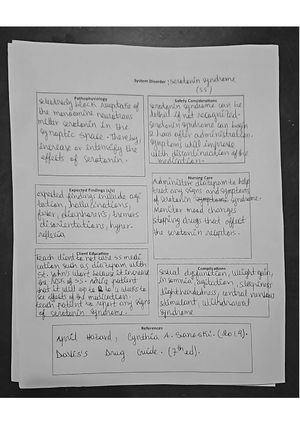 System Disorder: serotonin syndrome
(SS)
Pathophysiology
selectively block reuptake of
the monoamine neurotrans
mitter serotonin in the
synaptic space. Thereby
increase or intensify the
effects of serotonin.
Safety Considerations
serotonin syndrome can be
lethal if not recognized.
serotonin syndrome can begin
2 hours after administration.
symptoms will improve
with discontinuation of the
medication.
Expected Findings (s/s)
expected findings include agi
tation, hallucinations,
fever, diaphoresis, tremors
disorientations, hyper-
reflexia
Nursing Care
Administer diazepam to help
treat any signs and symptoms
of serotonin syndrome.
Monitor mood changes
stopping drugs that affect
the serotonin receptors.
Client Education
Teach client to not use SS med
ication such as with
St. John's wort because it increase
the risk of SS. Advise patient
that it will to 4 weeks to
see effects of the medication.
teach patient to report any signs
of serotonin syndrome.
Complications
sexual dysfunction, weight gain,
insomnia, agitation, sleepiness
lightheadedness, central nervous
stimulant, withdrawal
syndrome
References
April Hazard, Cynthia A. (2019).
Davis's Drug Guide. (7th ed).